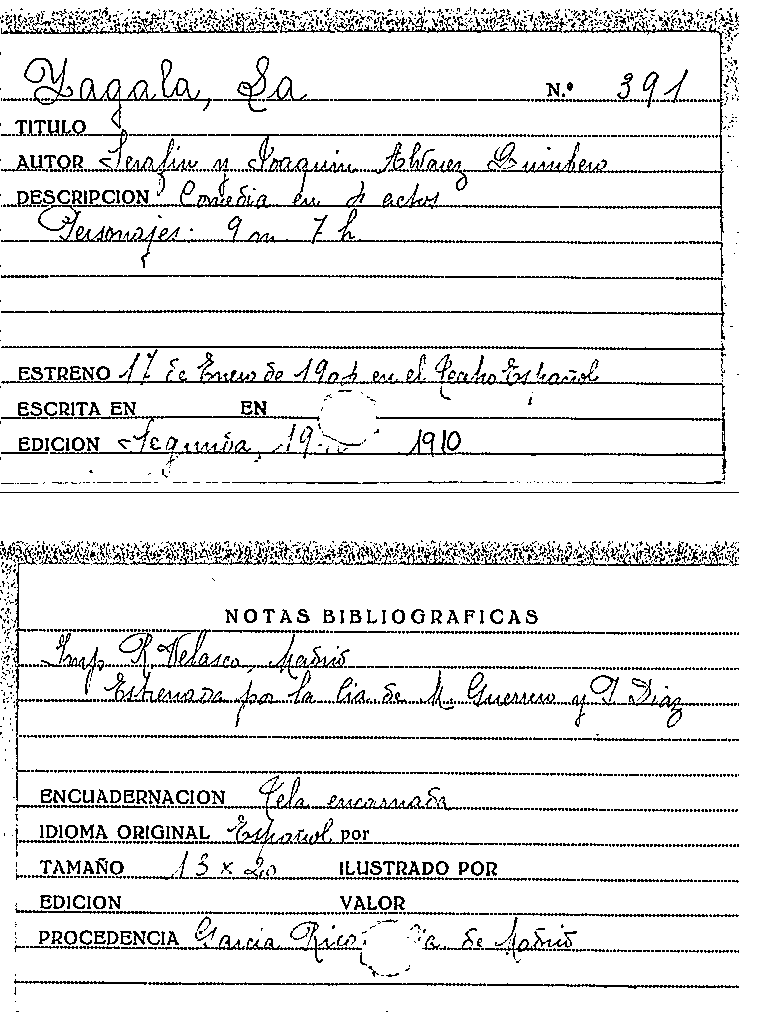 Zagala, La N.º 391
TITULO
AUTOR Serafin y Joaquin Alvarez Quintero
DESCRIPCION Comedia en 4 actos
Personajes: 9 m 7 h
ESTRENO 17 de Enero de 1904 en el Teatro Español
ESCRITA EN EN
EDICION Segunda, 1910
NOTAS BIBLIOGRAFICAS
Imp R. Velasco, Madrid
Estrenada por la Cia de M. Guerrero y D Diaz
ENCUADERNACION Tela encarnada
IDIOMA ORIGINAL Español por
TAMAÑO 13 x 20 ILUSTRADO POR
EDICION VALOR
PROCEDENCIA Garcia Rico de Madrid